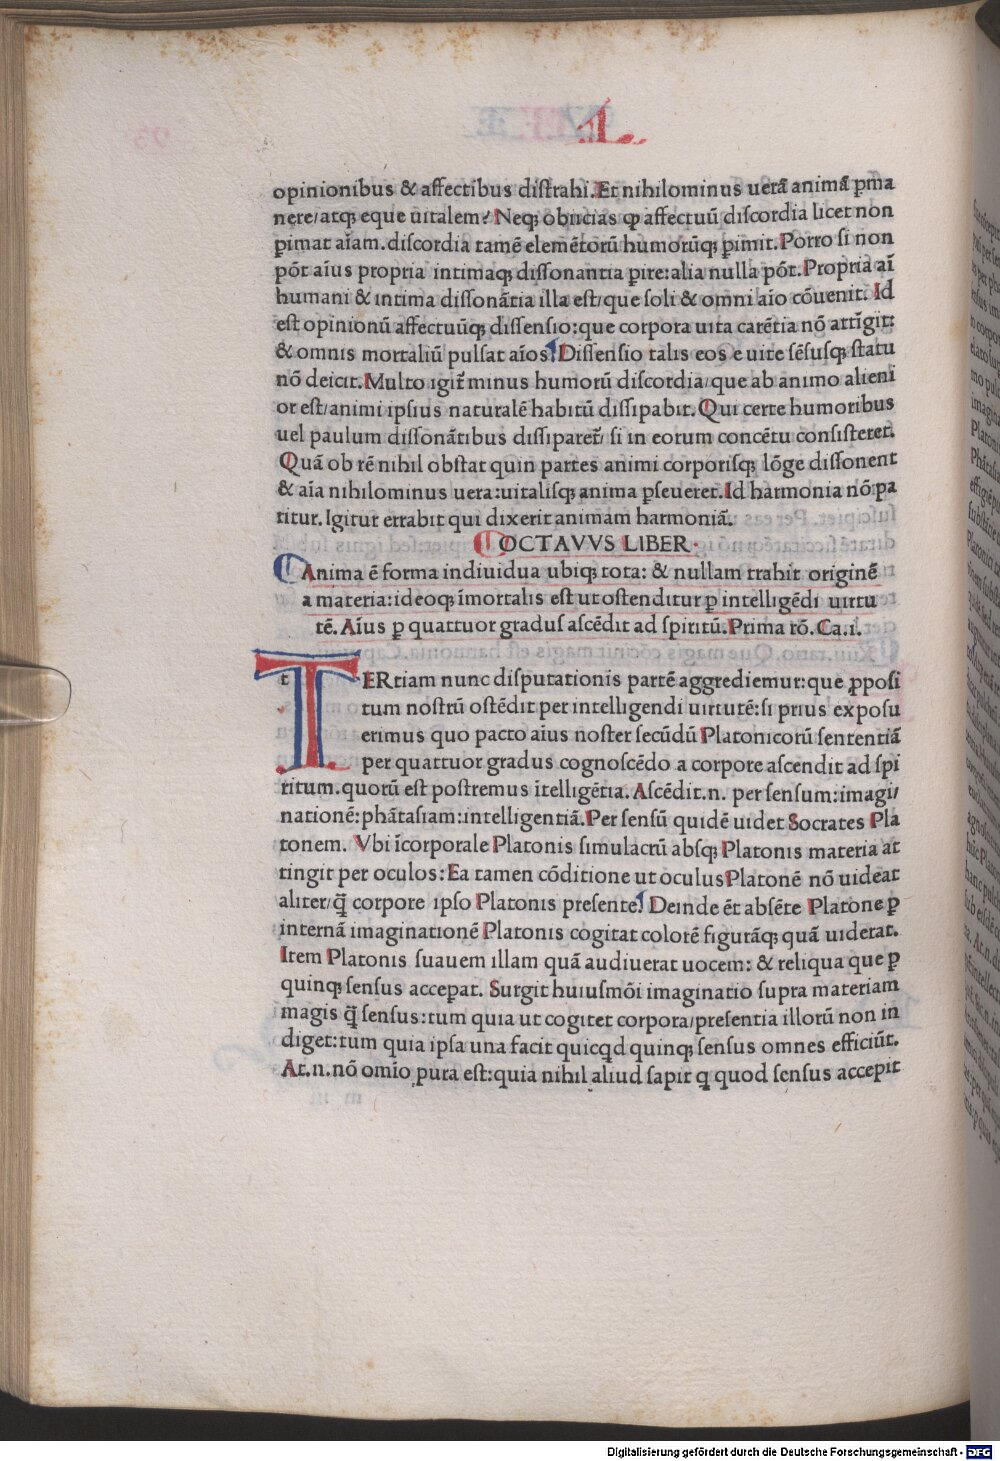 L
opinionibus & affectibus distrahi. Et nihilominus uerā animā ꝑma
nere/atqꝫ eque uitalem? Neqꝫ obiicias ꝙ affectuū discordia licet non
ꝑimat aīam. discordia tamē elemētorū humorūqꝫ ꝑimit. Porro si non
pōt aīus propria intimaqꝫ dissonantia ꝑire: alia nulla pōt. Propria aī
humani & intima dissonātia illa est/que soli & omni aīo cōuenit. Id
est opinionū affectuūqꝫ dissensio: que corpora uita carētia nō attīgit:
& omnis mortaliū pulsat aīos. Dissensio talis eos e uite sēsusqꝫ statu
nō deicit. Multo igit̄ minus humorū discordia/que ab animo alieni
or est/animi ipsius naturalē habitū dissipabit. Qui certe humoribus
uel paulum dissonātibus dissiparet̄/ si in eorum concētu consisteret.
Quā ob rē nihil obstat quin partes animi corporisqꝫ lōge dissonent
& aīa nihilominus uera: uitalisqꝫ anima ꝑseueret. Id harmonia nō pa
titur. Igitur errabit qui dixerit animam harmoniā.
OCTAVVS LIBER.
Anima ē forma indiuidua ubiqꝫ tota: & nullam trahit originē
a materia: ideoqꝫ īmortalis est ut ostenditur ꝑ intelligēdi uirtu
tē. Aīus ꝑ quattuor gradus ascēdit ad spiritū. Prima rō. Ca. i.
t TERtiam nunc disputationis partē aggrediemur: que ꝓposi
tum nostrū ostēdit per intelligendi uirtutē: si prius exposu
erimus quo pacto aīus noster secūdū Platonicorū sententiā
per quattuor gradus cognoscēdo a corpore ascendit ad spi
ritum. quorū est postremus ītelligētia. Ascēdit .n. per sensum: imagi/
nationē: phātasiam: intelligentiā. Per sensū quidē uidet Socrates Pla
tonem. Vbi īcorporale Platonis simulacrū absqꝫ Platonis materia at
tingit per oculos: Ea tamen cōditione ut oculus Platonē nō uideat
aliter/q̄ corpore ipso Platonis presente. Deinde ēt absēte Platone ꝑ
internā imaginationē Platonis cogitat colorē figurāqꝫ quā uiderat.
Item Platonis suauem illam quā audiuerat uocem: & reliqua que ꝑ
quinqꝫ sensus acceperat. Surgit huiusmōi imaginatio supra materiam
magis q̄ sensus: tum quia ut cogitet corpora/presentia illorū non in
diget: tum quia ipsa una facit quicqd quinqꝫ sensus omnes efficiūt.
At .n. nō omīo pura est: quia nihil aliud sapit q̄ quod sensus accepit
Digitalisierung gefördert durch die Deutsche Forschungsgemeinschaft - DFG